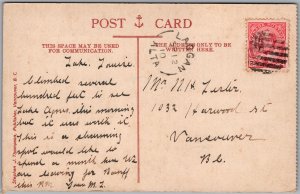 POST CARD
THIS SPACE MAY BE USED FOR
COMMUNICATION.
THE ADDRESS ONLY TO BE
WRITTEN HERE.
LAGGAN
ALTA
Lake Louise
Climbed several
hundred feet to see
Lake Agnes this morning
but it was worth it
This is a charming
spot would like to
spend a month here We
are leaving for Banff
this P.M.
1032 Harwood St
Vancouver
B.C.